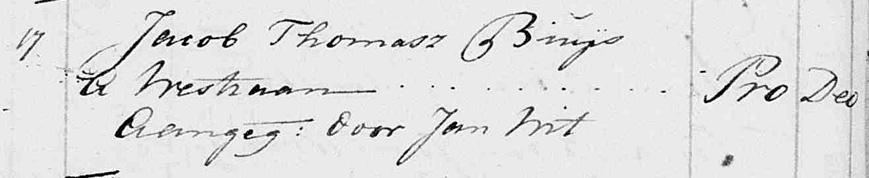 17 Jacob Thomasz Buijs
te Westzaan . . . . . . . . . . Pro Deo
Aangeg: door Jan Wit